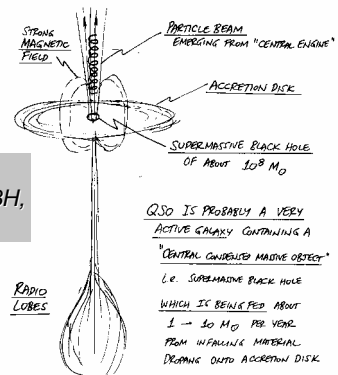 STRONG
MAGNETIC
FIELD
PARTICLE BEAM
EMERGING FROM "CENTRAL ENGINE"
ACCRETION DISK
SUPERMASSIVE BLACK HOLE
OF ABOUT 10⁸ M₀
BH,
QSO IS PROBABLY A VERY
ACTIVE GALAXY CONTAINING A
"CENTRAL CONDENSED MASSIVE OBJECT"
i.e. SUPERMASSIVE BLACK HOLE
WHICH IS BEING FED ABOUT
1 → 10 M₀ PER YEAR
FROM INFALLING MATERIAL
DROPPING ONTO ACCRETION DISK
RADIO
LOBES